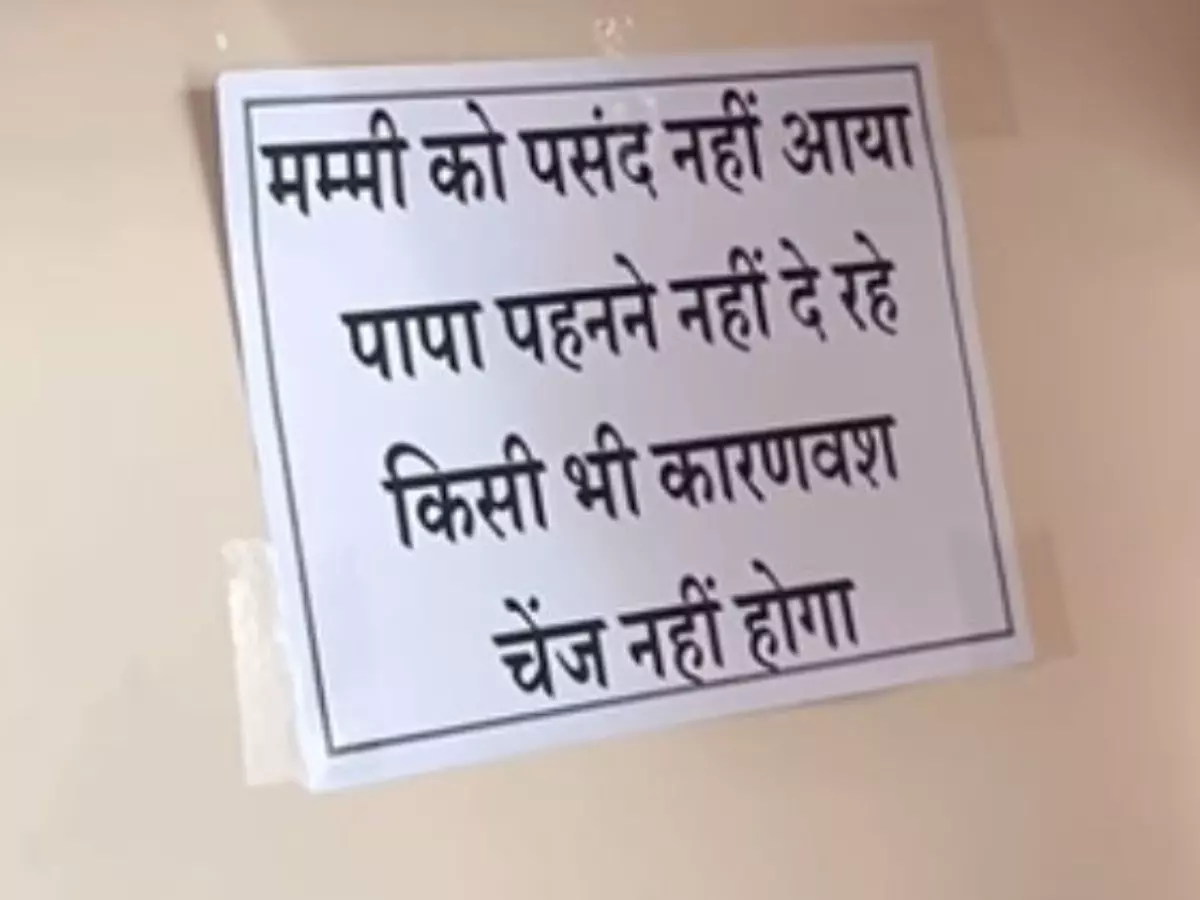 मम्मी को पसंद नहीं आया
पापा पहनने नहीं दे रहे
किसी भी कारणवश
चेंज नहीं होगा